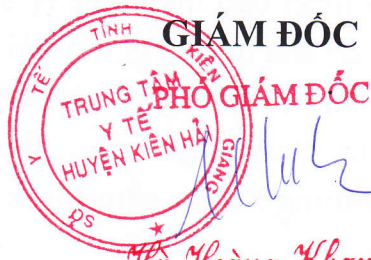 GIÁM ĐỐC
PHÓ GIÁM ĐỐC
SỞ Y TẾ TỈNH KIÊN GIANG
TRUNG TÂM
Y TẾ
HUYỆN KIÊN HẢI